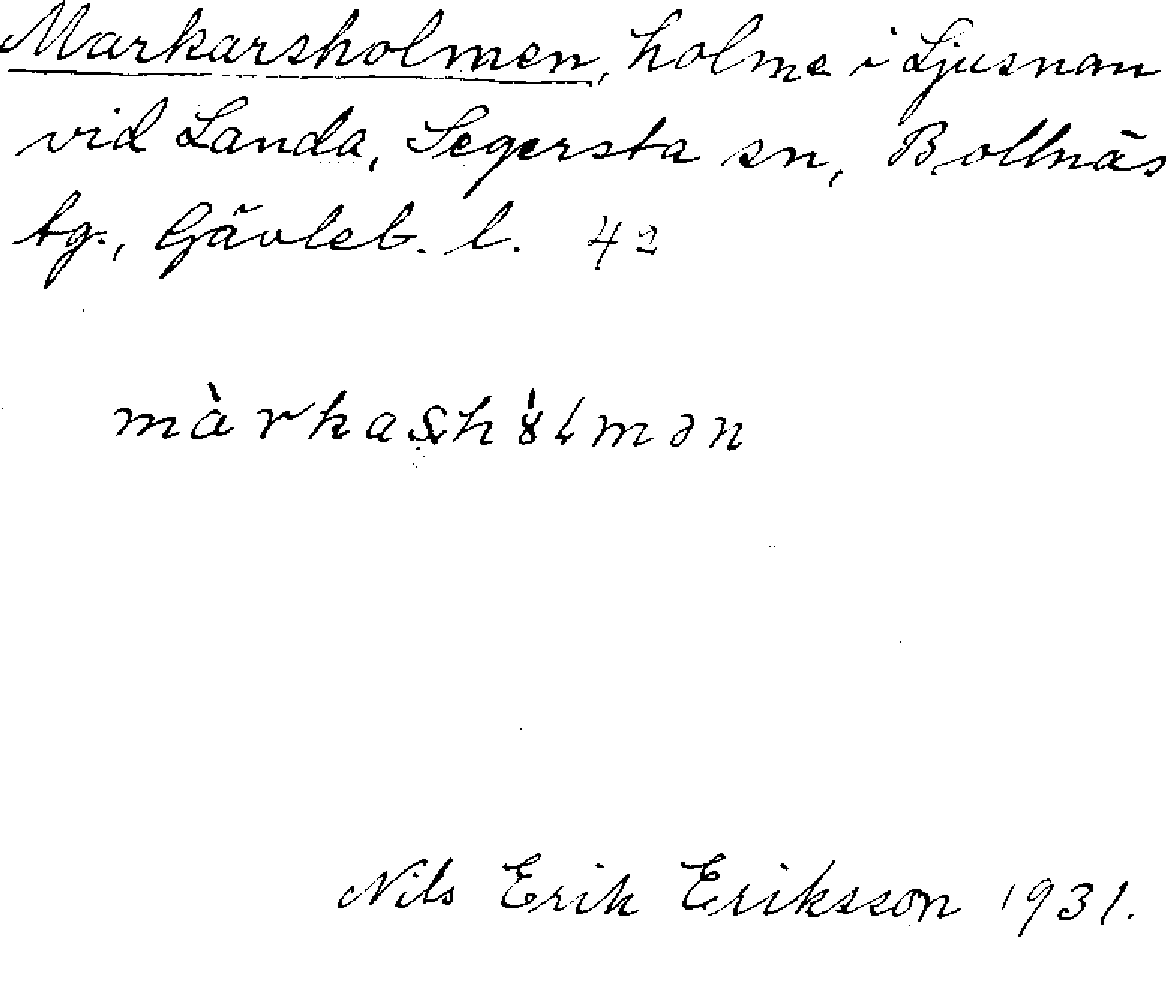 Markarsholmen, holme i Ljusnan
vid Landa, Segersta sn, Bollnäs
tg., Gävleb. l. 42
Nils Erik Eriksson 1931.